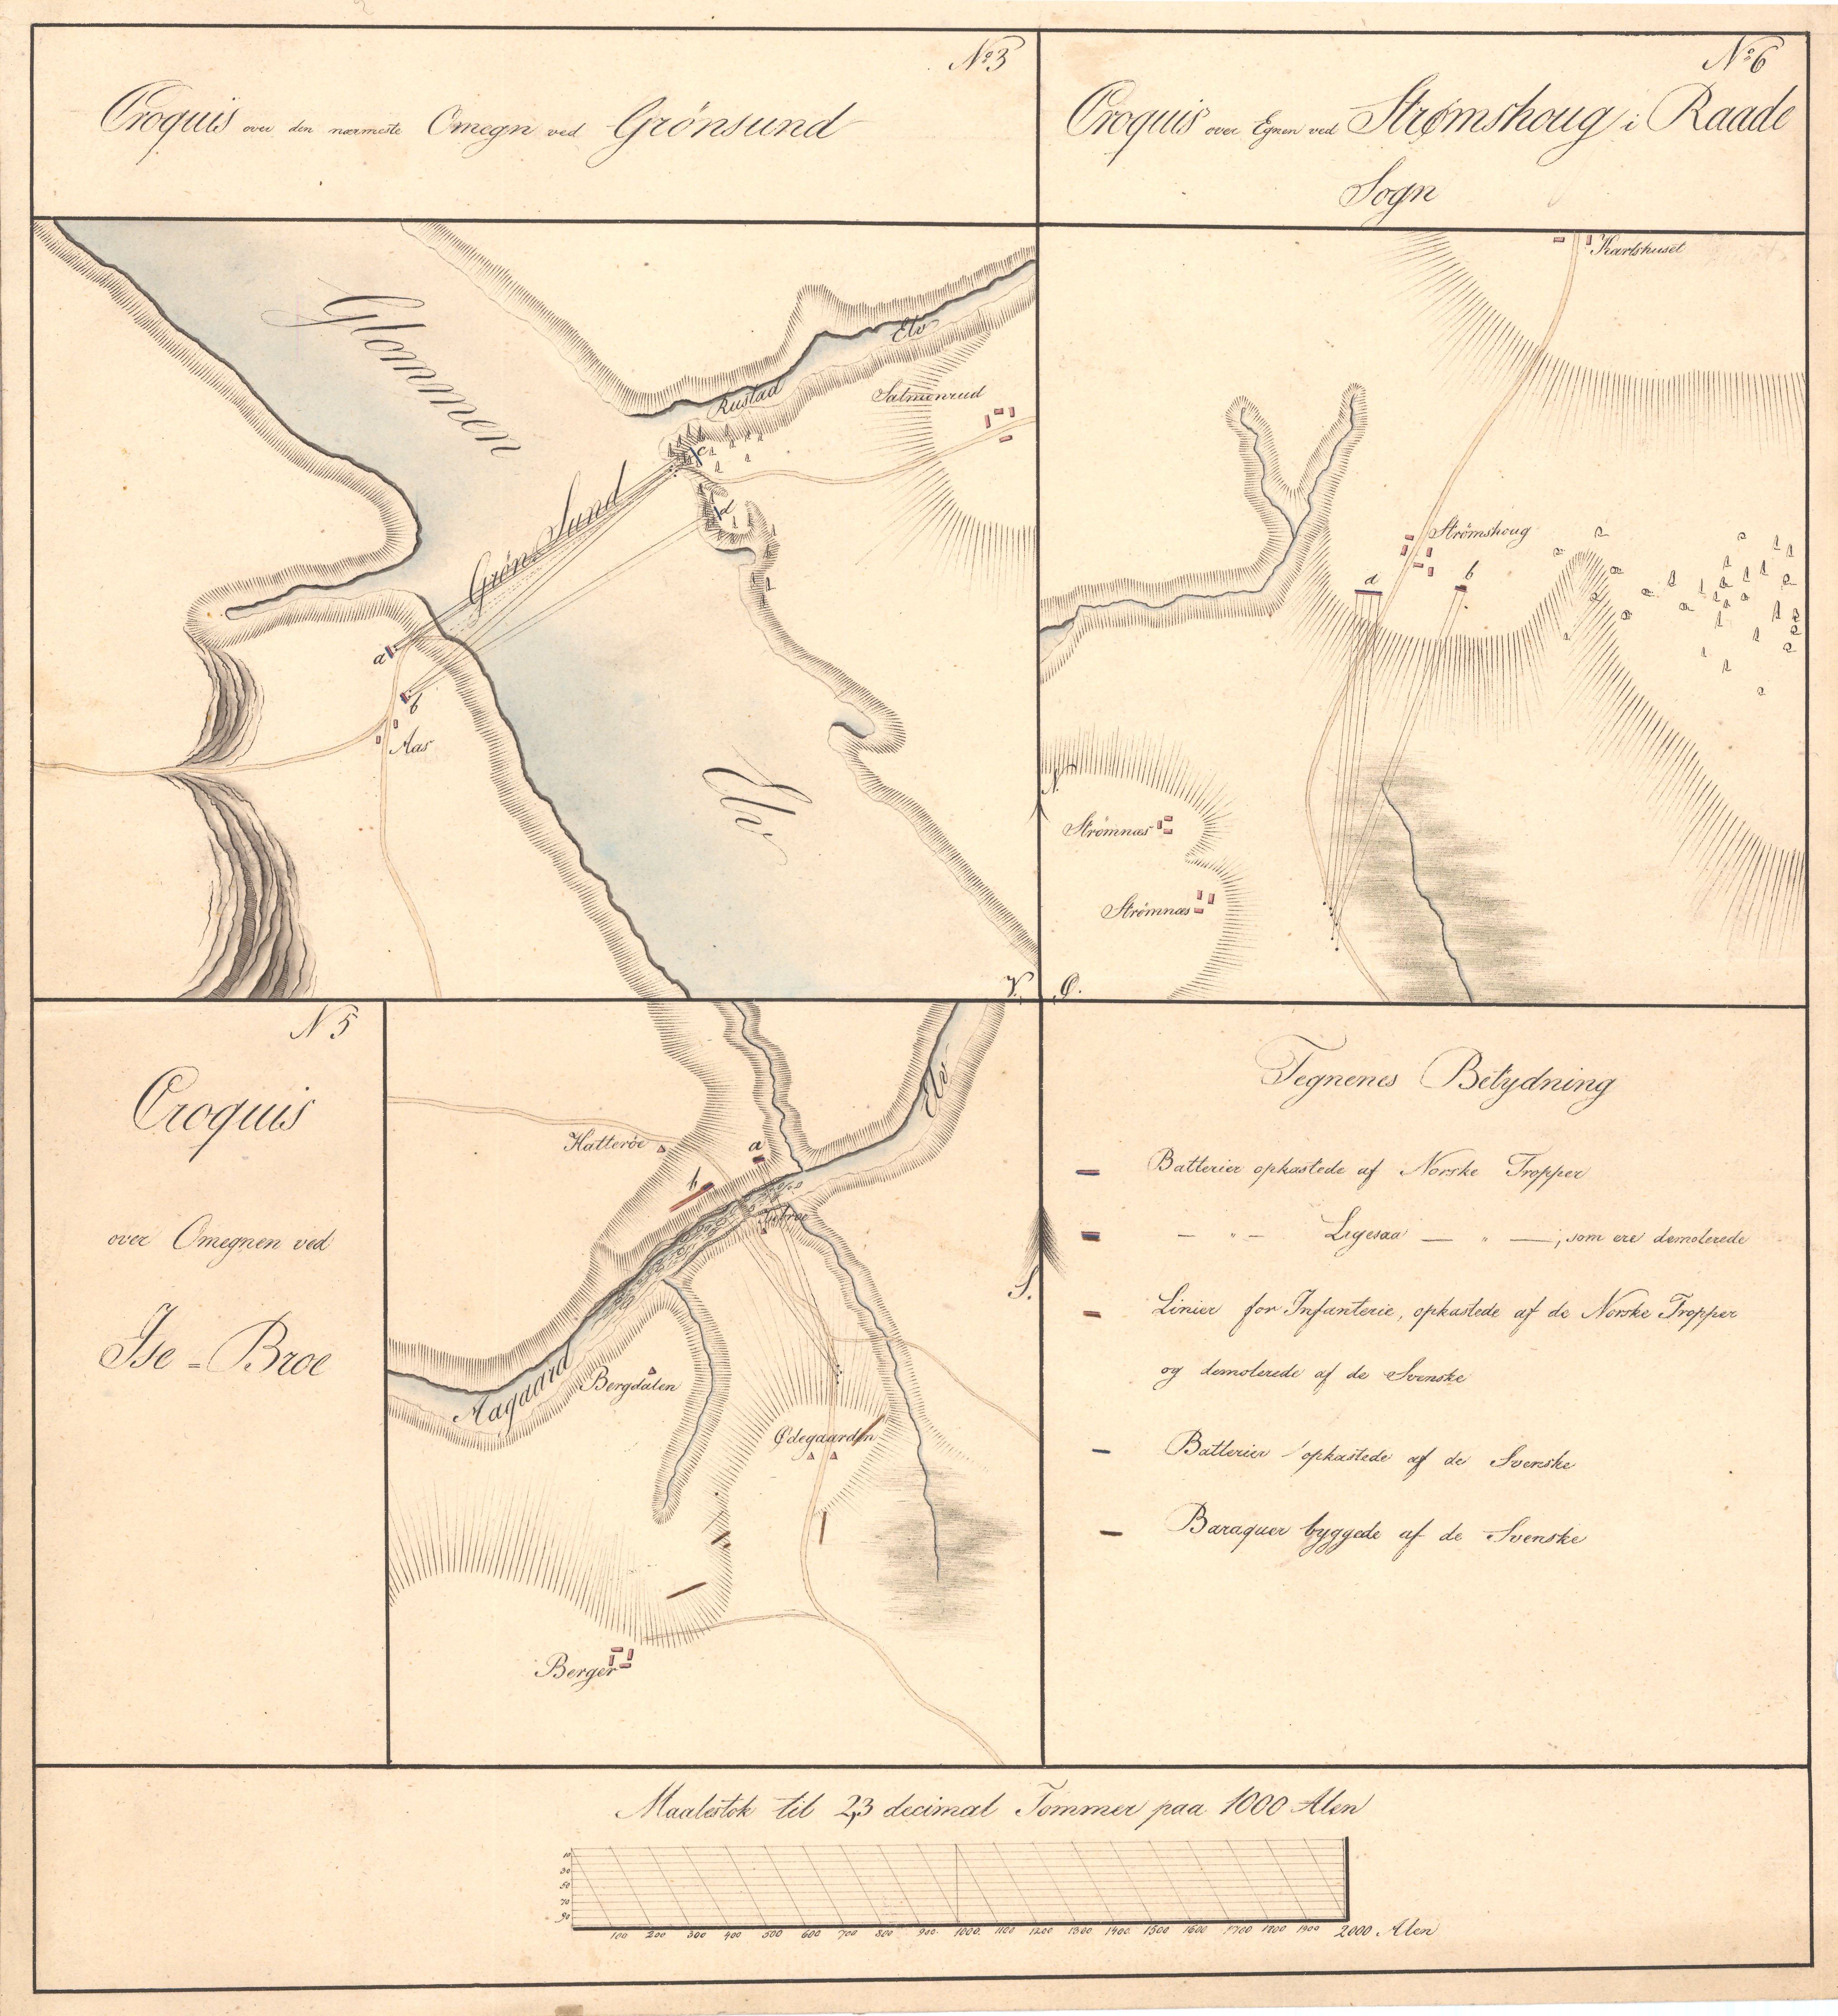 No 3
Croquis over den nærmeste Omegn ved Grönsund
No 6
Croquis over Egnen ved Strømshoug i Raade
Sogn
Glommen
Elv
Rustad
Elv
Salmonrud
c
d
Grön Sund
a
b
Aas
Karlshuset
Strömshoug
a
b
N.
Strömnæs
Strömnæs
V.
O.
S.
N 5
Croquis
over Omegnen ved
Ise - Broe
Hatteröe
a
b
Aagaard
Elv
Bergdalen
Ødegaarden
Berger
Tegnenes Betydning
Batterier opkastede af Norske Tropper
— " — Ligesaa — " —, som ere demolerede
Linier for Infanterie, opkastede af de Norske Tropper
og demolerede af de Svenske
Batterier opkastede af de Svenske
Baraquer byggede af de Svenske
Maalestok til 2,3 decimal Tommer paa 1000 Alen
10
30
50
70
90
100 200 300 400 500 600 700 800 900 1000 1100 1200 1300 1400 1500 1600 1700 1800 1900 2000 Alen